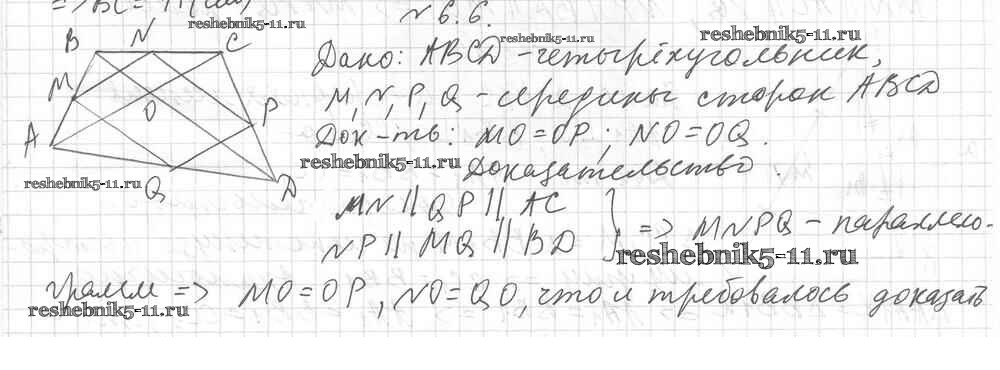 => BC = 11 (см)
№ 6.6.
reshebnik5-11.ru
reshebnik5-11.ru
reshebnik5-11.ru
B N C
M
O P
A
Q D
Дано: ABCD - четырёхугольник,
M, N, P, Q - середины сторон ABCD
Док-ть: MO = OP; NO = OQ.
reshebnik5-11.ru
Доказательство.
reshebnik5-11.ru
MN || QP || AC
NP || MQ || BD } => MNPQ - параллело-
reshebnik5-11.ru
грамм => MO = OP, NO = QO, что и требовалось доказать
reshebnik5-11.ru